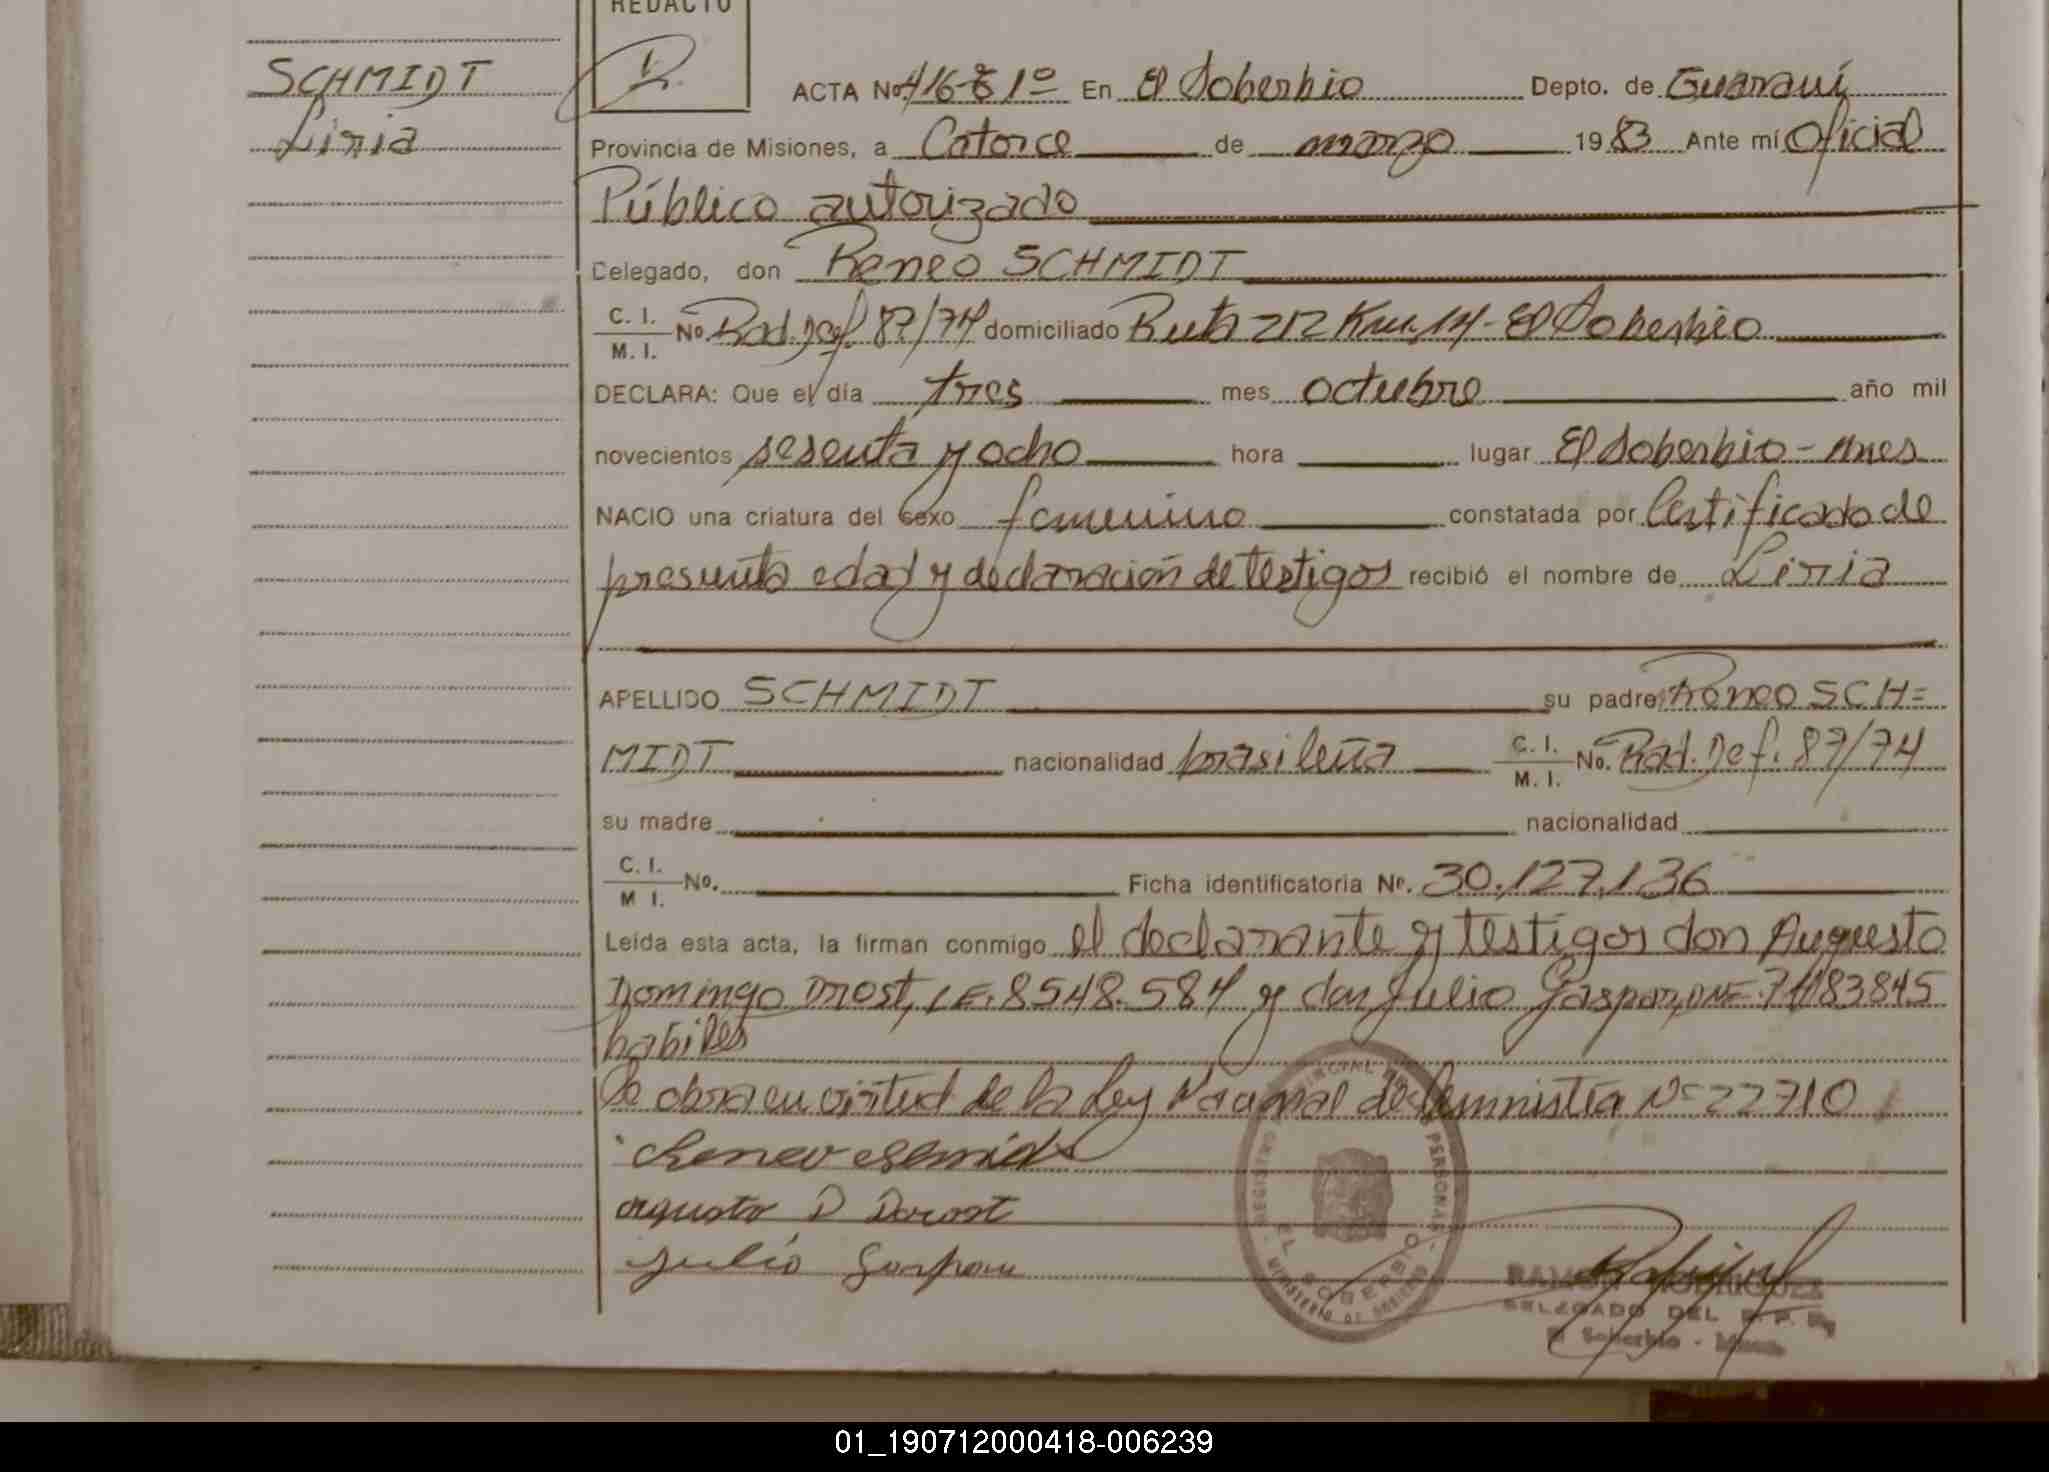 REDACTO
SCHMIDT
Liria
ACTA Nº 416-E 1º En El Soberbio Depto. de Guaraní
Provincia de Misiones, a Catorce de marzo 1983 Ante mí Oficial
Público autorizado
Delegado, don Reneo SCHMIDT
C. I.
M. I. Nº Rad. Def. 87/74 domiciliado Ruta 212 Km. 14 - El Soberbio
DECLARA: Que el día tres mes octubre año mil
novecientos sesenta y ocho hora lugar El Soberbio - Mnes
NACIO una criatura del sexo femenino constatada por Certificado de
presunta edad y declaración de testigos recibió el nombre de Liria
APELLIDO SCHMIDT su padre Reneo SCH=
MIDT nacionalidad brasileña C. I.
M. I. No. Rad. Def. 87/74
su madre nacionalidad
C. I.
M I. No. Ficha identificatoria Nº. 30.127.136
Leída esta acta, la firman conmigo el declarante y testigos don Augusto
Domingo Drost, LE. 8548.584 y don Julio Gaspar,
habiles
Se obra en virtud de la Ley Nacional de Amnistía Nº 22710
Reneo
augusto D Drost
Julio Gaspar
REGISTRO PROVINCIAL DE LAS PERSONAS
EL SOBERBIO
MINISTERIO DE GOBIERNO
RAMON RODRIGUEZ
DELEGADO DEL R. P. P.
El Soberbio - Mnes.
01_190712000418-006239